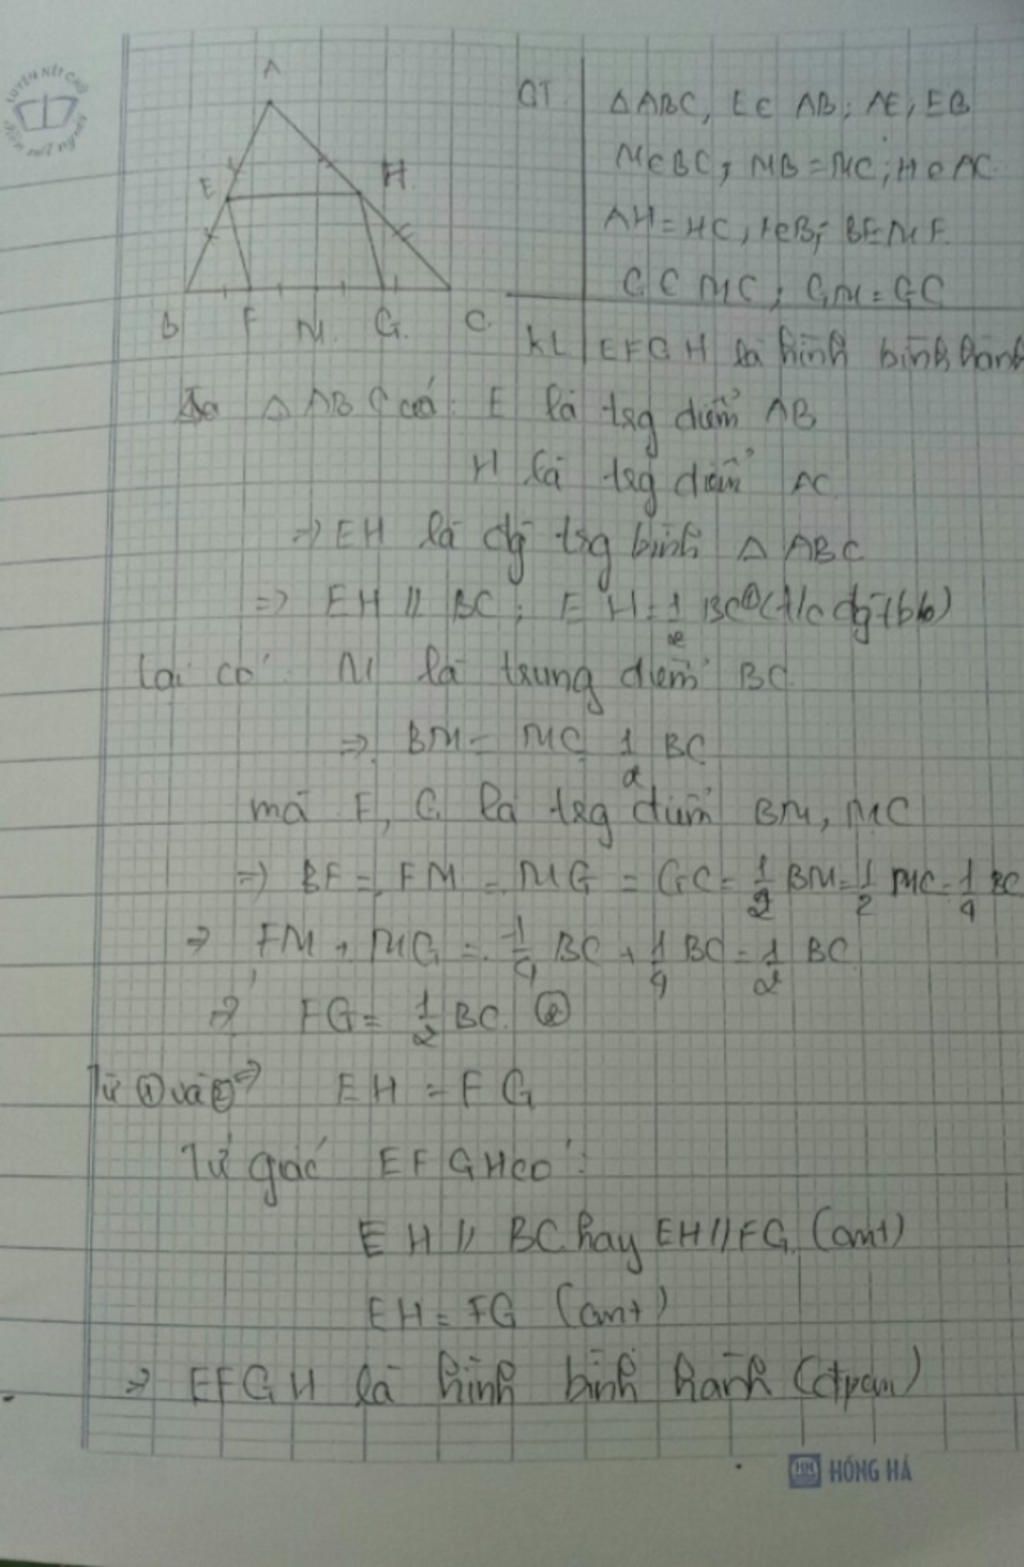 LUYỆN NÉT CHỮ
A
E
H
B F M G C
GT
ΔABC, E ∈ AB; AE, EB
M ∈ BC; MB = MC; H ∈ AC
AH = HC, F ∈ B; BF = MF
G ∈ MC; GM = GC
KL EFGH là hình bình hành
ΔABC có: E là trg điểm AB
H là trg điểm AC
=> EH là đg trg bình Δ ABC
=> EH // BC; EH = 1/2 BC ① (t/c đg tb)
Lại có: M là trung điểm BC
=> BM = MC 1/2 BC
mà F, G là trg điểm BM, MC
=> BF = FM = MG = GC = 1/2 BM = 1/2 MC = 1/4 BC
=> FM + MG = 1/4 BC + 1/4 BC = 1/2 BC
=> FG = 1/2 BC ②
Từ ① và ② => EH = FG
Tứ giác EFGH có:
EH // BC hay EH // FG (cmt)
EH = FG (cmt)
=> EFGH là hình bình hành (đpcm)
HH HỒNG HÀ